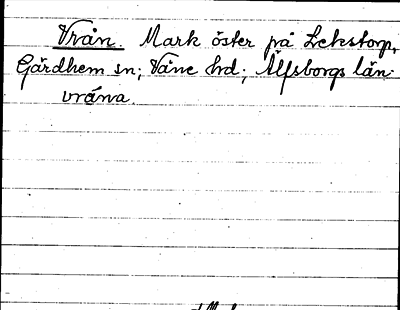 Vrån. Mark öster på Lekstorp,
Gärdhem sn; Väne hd; Älfsborgs län.
vråna.